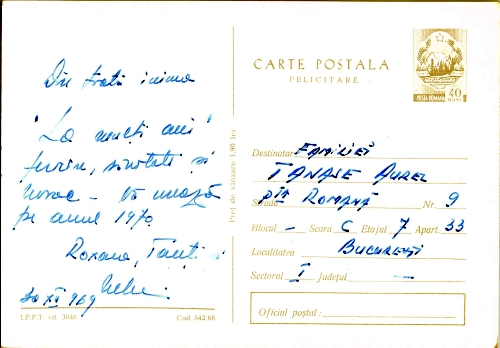 Din toată inima
"La mulți ani"
fericire, sănătate și
noroc – Vă urează
pe anul 1970
Roxana, Tanți și
30 XII 969
I.P.P.T. cd. 3048
Cod 542-68
Preț de vînzare 1,90 lei
CARTE POSTALA
FELICITARE
POSTA ROMANA 40 BANI
Destinatar FAMILIEI
TANASE AUREL
Strada P-ța ROMANĂ Nr. 9
Blocul – Scara C Etajul 7 Apart. 33
Localitatea BUCUREȘTI
Sectorul I județul —
Oficiul poștal: